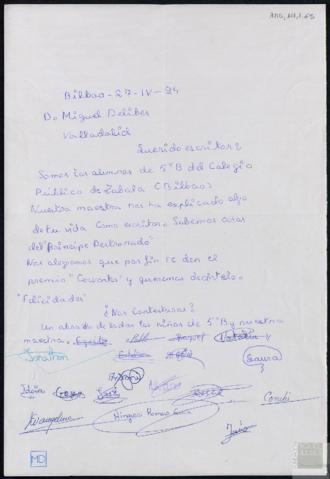 AMD,111,1.65
Bilbao-27-IV-94
D. Miguel Delibes
Valladolid
Querido escritor:
Somos los alumnos de 5º B del Colegio
Público de Zabala (Bilbao)
Nuestra maestra nos ha explicado algo
de tu vida como escritor. Sabemos cosas
del "Príncipe Destronado"
Nos alegramos que por fin te den el
premio "Cervantes" y queremos decírtelo.
"Felicidades"
¿Nos Contestarás?
Un abrazo de todos los niños de 5º B y nuestra
maestra.
Jonathan
Natalia
Saura
Idoia
Conchi
Evangelina
Jairo
MD